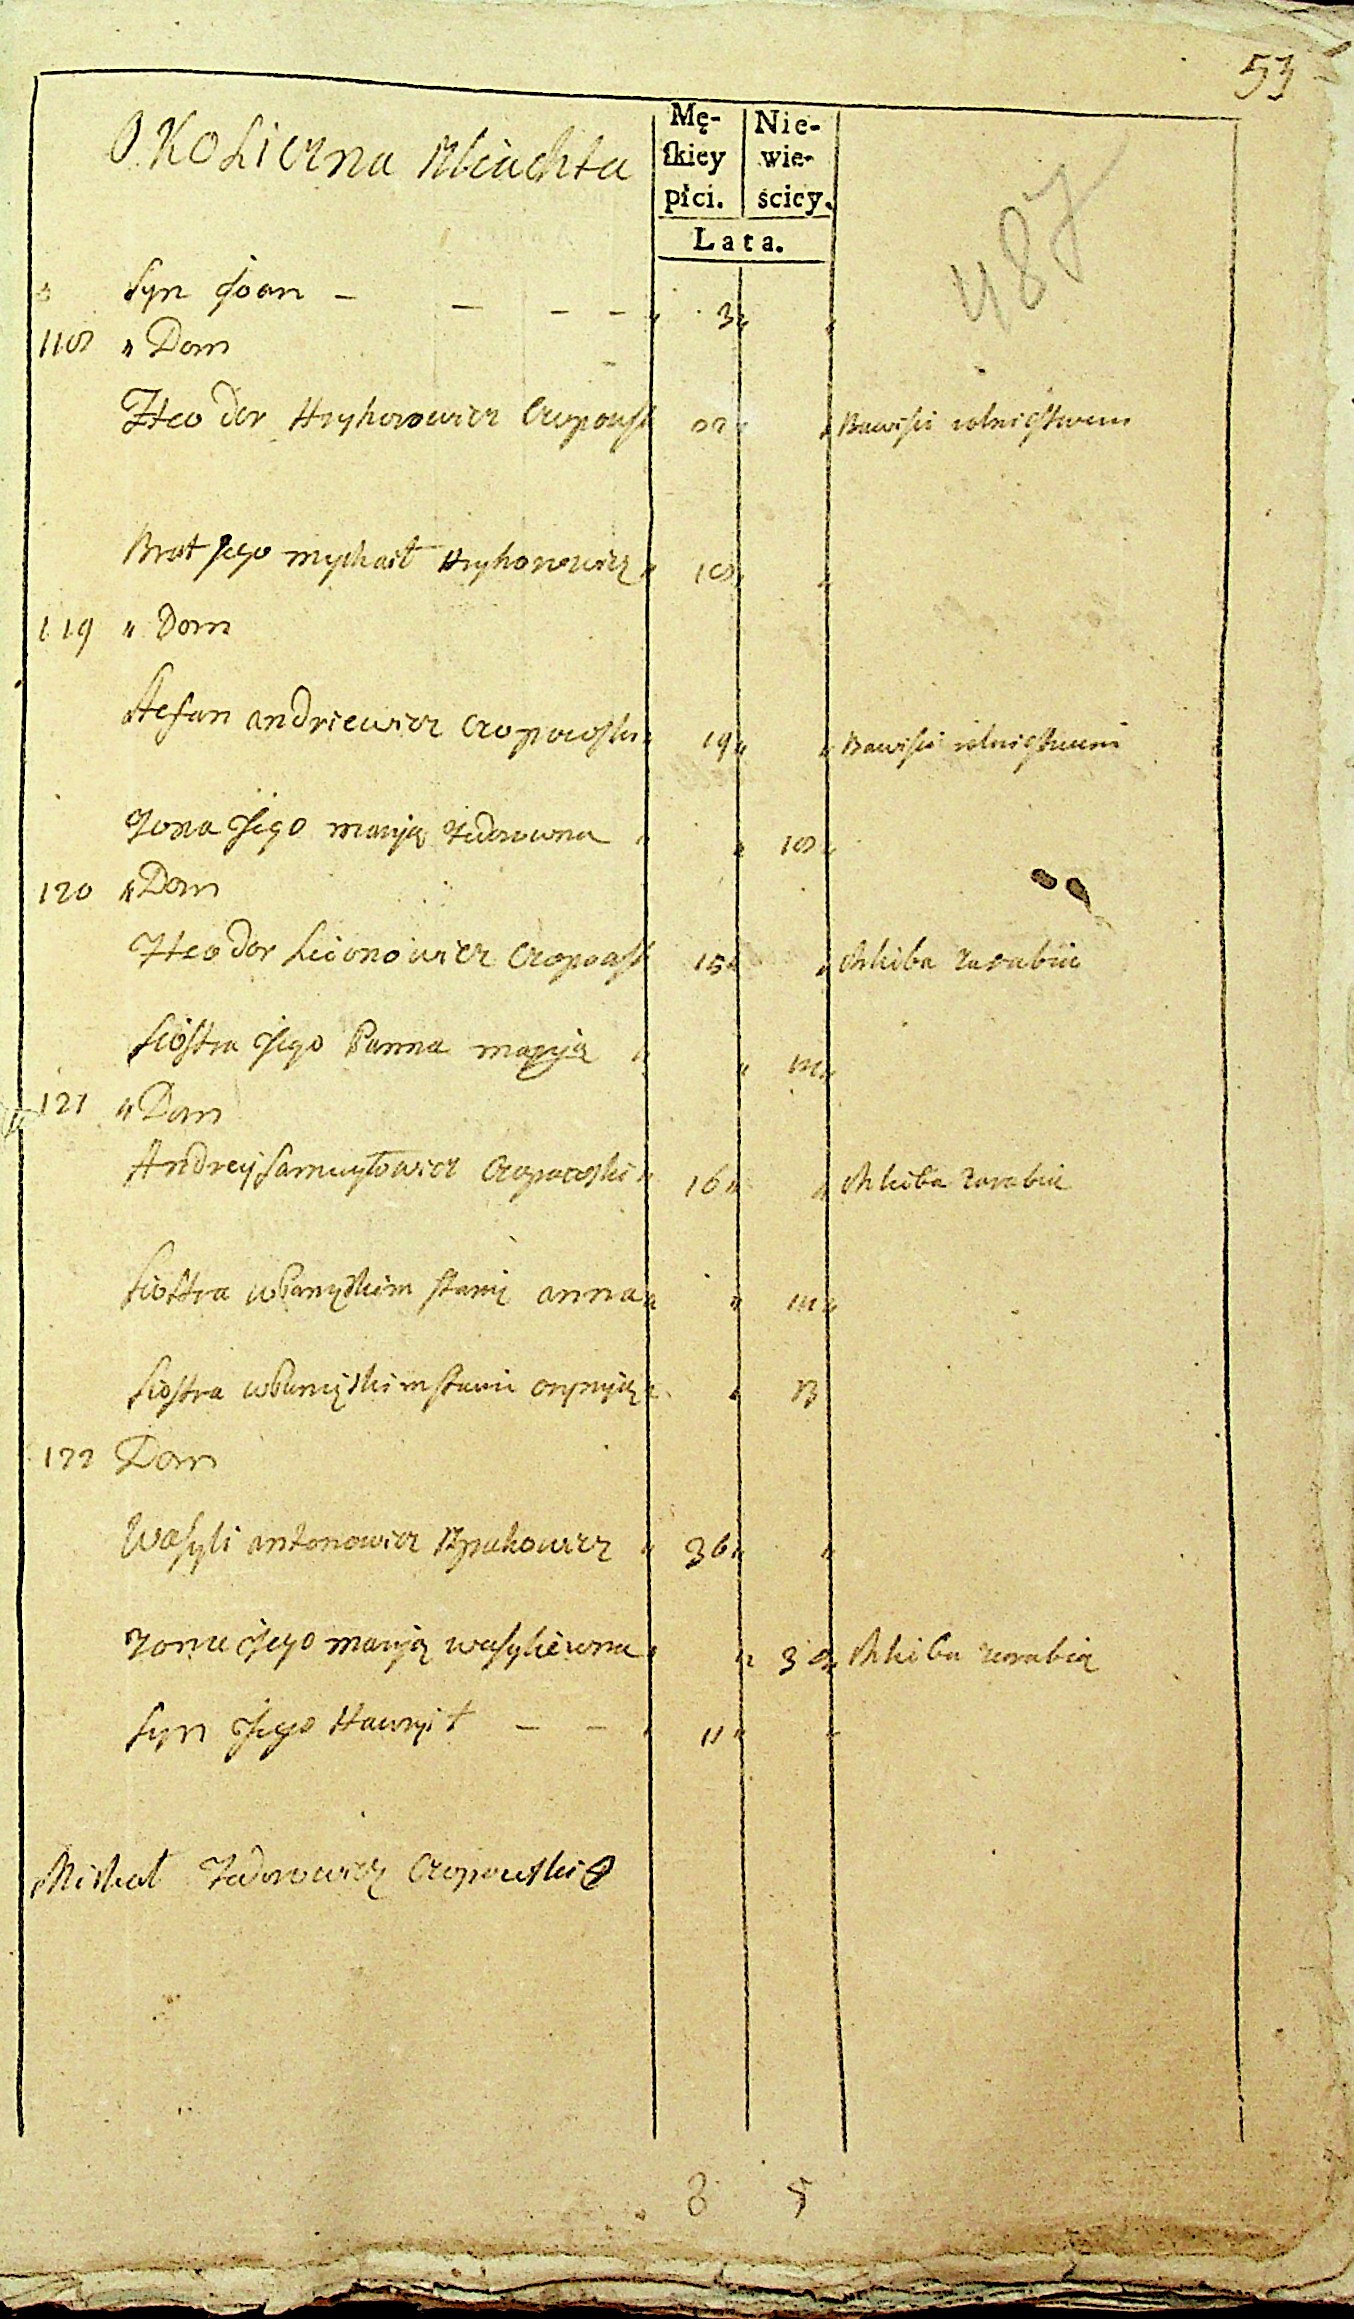 53
Okoliczna Szlachta
Mę-
skiey
płci.
Nie-
wie-
ściey.
Lata.
487
Syn Joan — — — — „ 3 „ „
118 „ Dom
Hteodor Hryhorowicz Czopowsk „ „ Bawi się rolnictwem
Brat Jego Mychaił Hryhorowicz „ 18 „ „
119 „ Dom
Stefan Andriewicz Czopowski „ 19 „ „ Bawi się rolnictwem
Żona Jego Maryja Fedorowna „ „ 18 „
120 „ Dom
Hteodor Lewonowicz Czopowsk 15 „ „ Chliba zarabia
Siostra Jego Panna Maryja „ „
121 „ Dom
Andrey Samuyłowicz Czopowski „ 16 „ „ Chliba zarabia
Siostra w Panieńskim stanie Anna „ „
Siostra w Panieńskim stanie „ „ 13
122 Dom
Wasyli Antonowicz „ 36 „ „
Żona Jego Maryja Wasylewna „ „ 30 „ Chliba zarabia
Syn Jego Hawrył — — „ 11 „ „
Michał Fedorowicz Czopowski
8 5